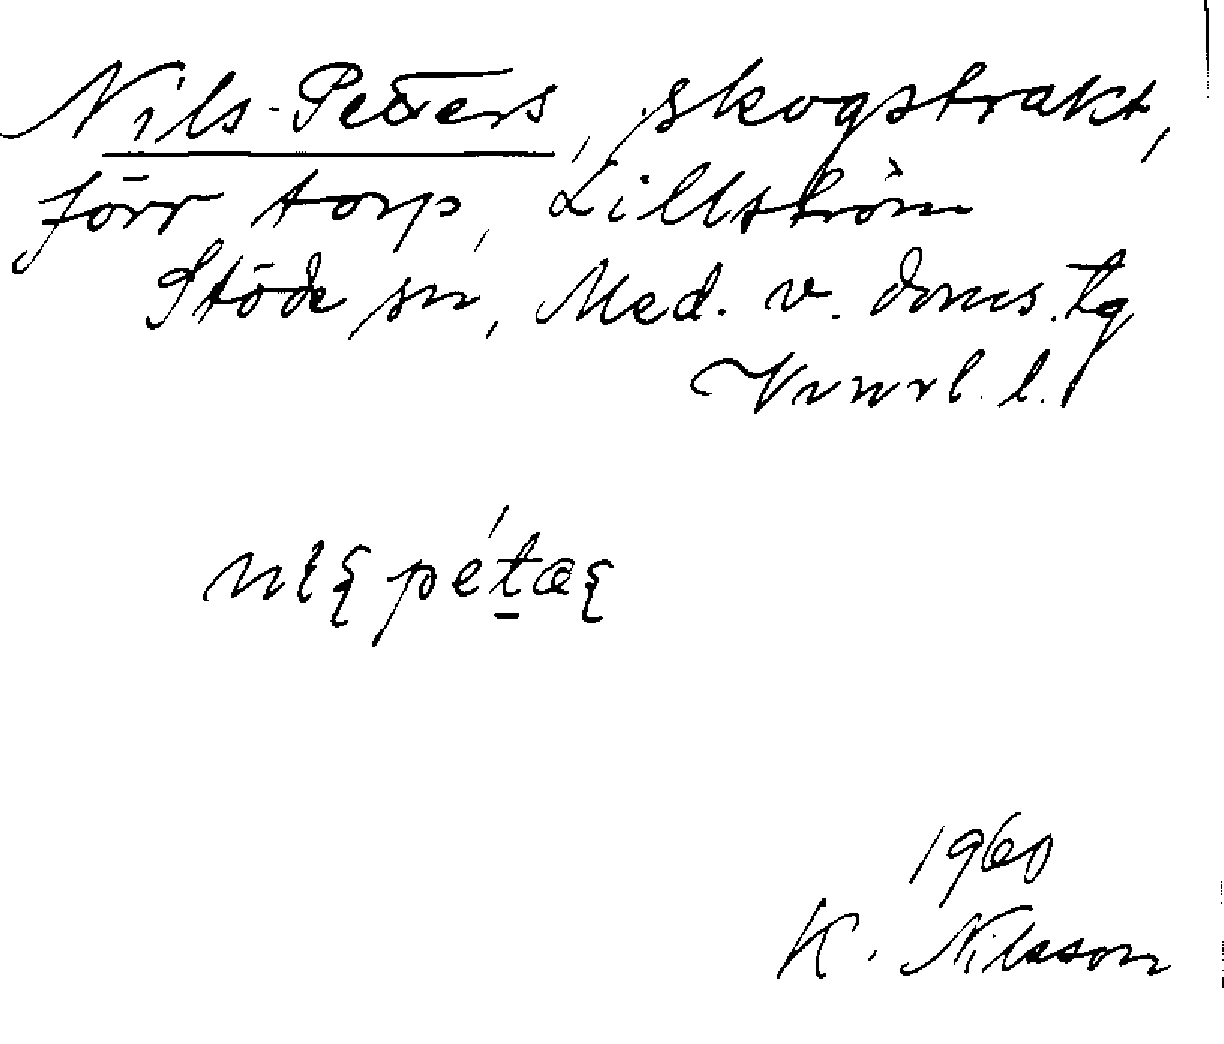 Nils-Petters, skogstrakt,
förr torp, Lillström
Stöde sn, Med. v. doms. tg
l. l.
1960
K. Nilsson